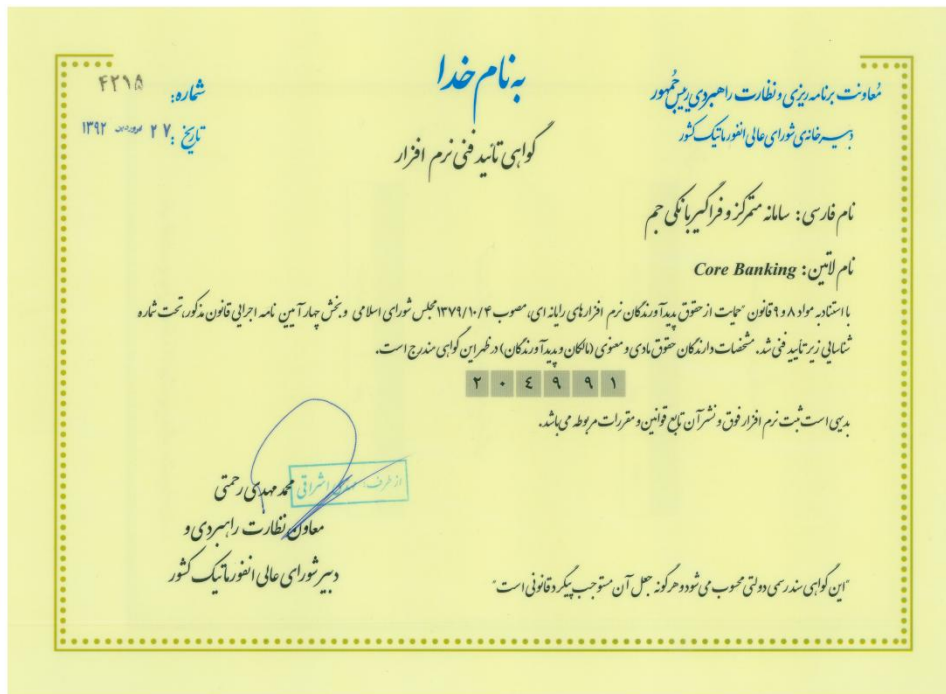 به نام خدا
معاونت برنامه ریزی و نظارت راهبردی رییس جُمهور
دبیرخانه‌ی شورای عالی انفورماتیک کشور
شماره: ۴۲۱۵
تاریخ: ۲۷ فروردین ۱۳۹۲
گواهی تائید فنی نرم افزار
نام فارسی: سامانه متمرکز و فراگیر بانکی جم
نام لاتین: Core Banking
با استناد به مواد ۸ و ۹ قانون "حمایت از حقوق پدیدآورندگان نرم افزارهای رایانه ای، مصوب ۱۳۷۹/۱۰/۴ مجلس شورای اسلامی و بخش چهار آیین نامه اجرایی قانون مذکور، تحت شماره
شناسایی زیر تایید فنی شد. مشخصات دارندگان حقوق مادی و معنوی (مالکان و پدیدآورندگان) در ظهر این گواهی مندرج است.
۲۰۴۹۹۱
بدیهی است ثبت نرم افزار فوق و نشر آن تابع قوانین و مقررات مربوطه می باشد.
از طرف: اشراقی
محمد مهدی رحمتی
معاون نظارت راهبردی و
دبیر شورای عالی انفورماتیک کشور
"این گواهی سند رسمی دولتی محسوب می شود و هرگونه جعل آن مستوجب پیگرد قانونی است"